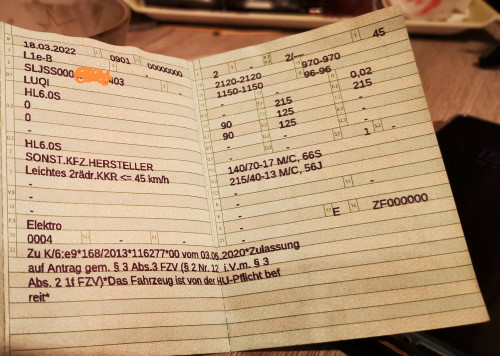 18.03.2022 0901 00000000
L1e-B
SLJSS000 403
LUQI
HL6.0S
0
0
-
HL6.0S
SONST.KFZ.HERSTELLER
Leichtes 2rädr.KKR <= 45 km/h
-
-
-
Elektro
0004 - -
2 - 2/— 45
2120-2120 970-970
1150-1150 96-96 0,02
- - 215
- 215
- 125
90 125 1 -
90 -
-
140/70-17 M/C, 66S
215/40-13 M/C, 56J
- -
-
- E ZF000000
Zu K/6:e9*168/2013*116277*00 vom 03.06.2020*Zulassung
auf Antrag gem. § 3 Abs.3 FZV (§ 2 Nr. 12 i.V.m. § 3
Abs. 2 1f FZV)*Das Fahrzeug ist von der HU-Pflicht bef
reit*